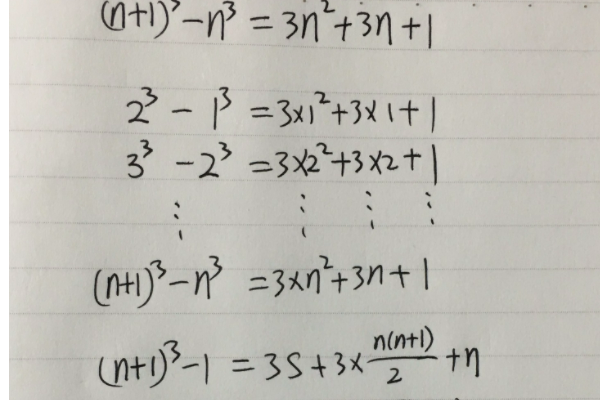 (n+1)³-n³ = 3n²+3n+1
2³ - 1³ = 3×1²+3×1+1
3³ - 2³ = 3×2²+3×2+1
⋮ ⋮ ⋮ ⋮
(n+1)³-n³ = 3×n²+3n+1
(n+1)³-1 = 3S+3×n(n+1)/2+n